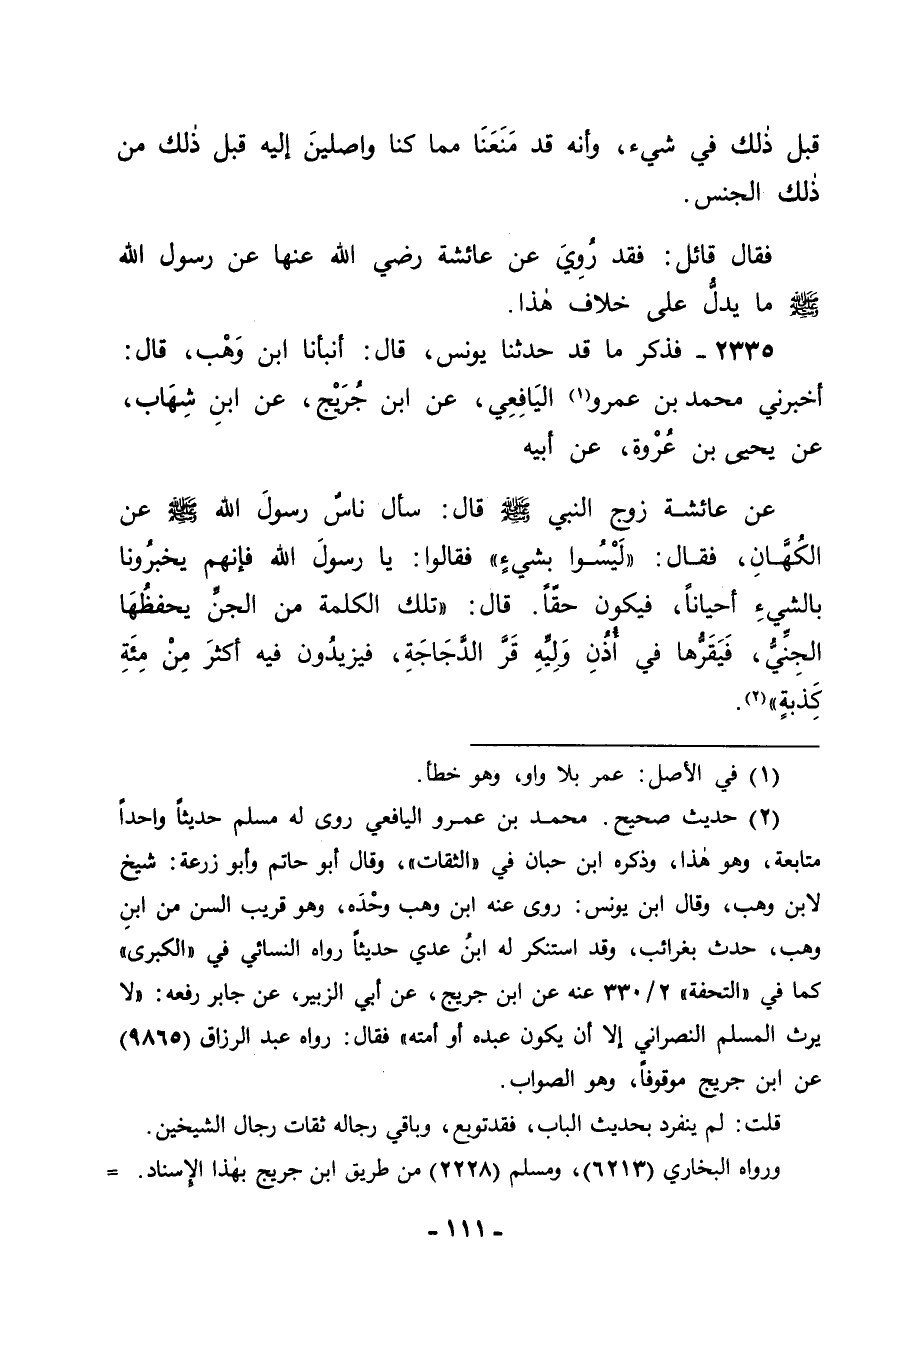 قبل ذٰلك في شيء، وأنه قد مَنَعَنَا مما كنا واصلينَ إليه قبل ذٰلك من
ذٰلك الجنس.
فقال قائل: فقد رُوِيَ عن عائشة رضي الله عنها عن رسول الله
ﷺ ما يدلُّ على خلاف هٰذا.
٢٣٣٥ ـ فذكر ما قد حدثنا يونس، قال: أنبأنا ابن وَهْب، قال:
أخبرني محمد بن عمرو(١) اليَافِعِي، عن ابن جُرَيْج، عن ابنِ شِهَاب،
عن يحيى بن عُرْوة، عن أبيه
عن عائشة زوج النبي ﷺ قال: سأل ناسٌ رسولَ الله ﷺ عن
الكُهَّانِ، فقال: «لَيْسُوا بشيءٍ» فقالوا: يا رسولَ الله فإنهم يخبرُونا
بالشيءِ أحياناً، فيكون حقّاً. قال: «تلك الكلمة من الجنِّ يحفظُهَا
الجِنِّيُّ، فَيَقَرُّها في أُذُنِ وَلِيِّهِ قَرَّ الدَّجَاجَةِ، فيزيدُون فيه أكثرَ مِنْ مِئَةِ
كَذِبةٍ»(٢).
(١) في الأصل: عمر بلا واو، وهو خطأ.
(٢) حديث صحيح. محمد بن عمرو اليافعي روى له مسلم حديثاً واحداً
متابعة، وهو هٰذا، وذكره ابن حبان في «الثقات»، وقال أبو حاتم وأبو زرعة: شيخ
لابن وهب، وقال ابن يونس: روى عنه ابن وهب وحْدَه، وهو قريب السن من ابنِ
وهب، حدث بغرائب، وقد استنكر له ابنُ عدي حديثاً رواه النسائي في «الكبرى»
كما في «التحفة» ٣٣٠/٢ عنه عن ابن جريج، عن أبي الزبير، عن جابر رفعه: «لا
يرث المسلم النصراني إلا أن يكون عبده أو أمته» فقال: رواه عبد الرزاق (٩٨٦٥)
عن ابن جريج موقوفاً، وهو الصواب.
قلت: لم ينفرد بحديث الباب، فقدتوبع، وباقي رجاله ثقات رجال الشيخين.
ورواه البخاري (٦٢١٣)، ومسلم (٢٢٢٨) من طريق ابن جريج بهٰذا الإسناد. =
ـ ١١١ ـ